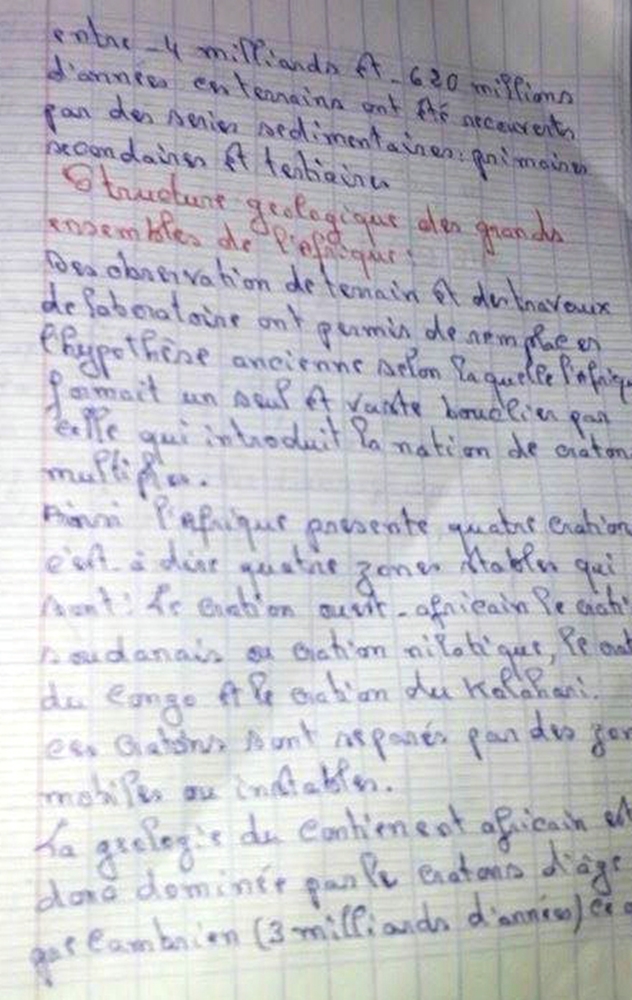 entre -4 milliards et -620 millions
d'années ces terrains ont été recouverts
par des series sedimentaires: primaires
secondaires et tertiaires
Structure geologique des grands
ensembles de l'afrique:
Des observation de terrain et des travaux
de laboratoire ont permis de remplacer
l'hypothèse ancienne selon laquelle l'afrique
formait un seul et vaste bouclier par
celle qui introduit la notion de craton
multiples.
Ainsi l'afrique presente quatre cration
c'est-à dire quatre zones stables qui
sont: le cration ouest-africain le crati
soudanais ou cration nilotique, le cra
du congo et le cration du Kalahari.
ces cratons sont separés par des zon
mobiles ou instables.
La geologie du contienent africain est
donc dominée par le cratons d'âge
precambrien (3 milliards d'années) ce